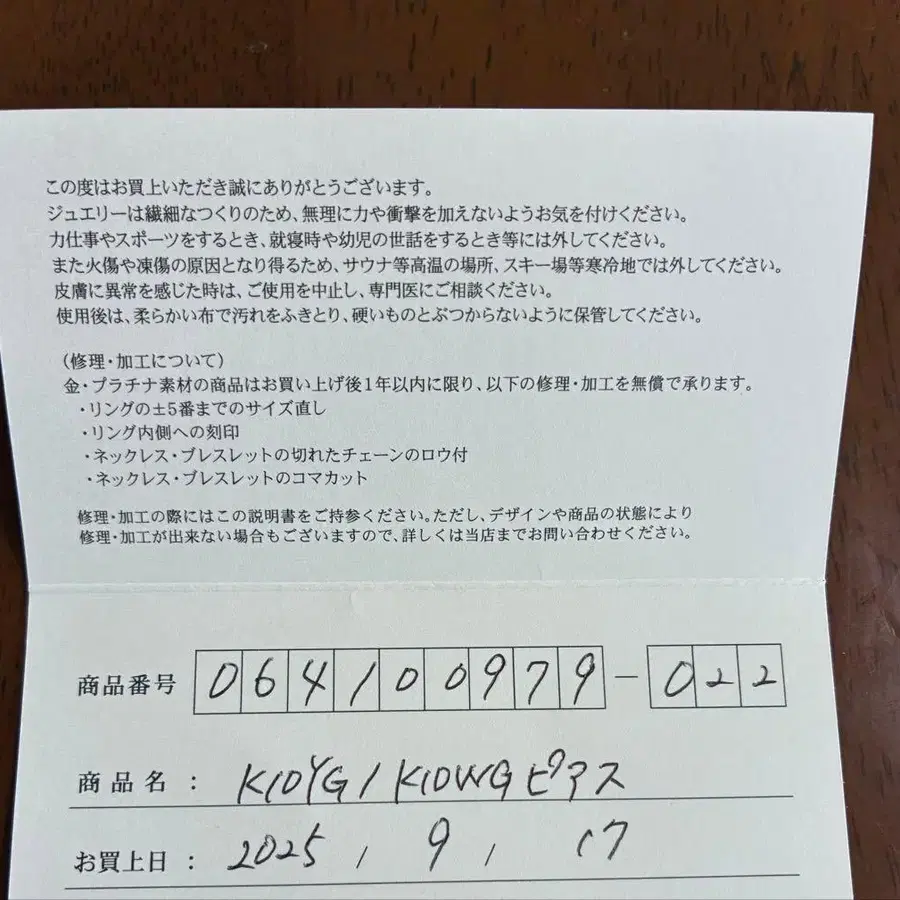 この度はお買上いただき誠にありがとうございます。
ジュエリーは繊細なつくりのため、無理に力や衝撃を加えないようお気を付けください。
力仕事やスポーツをするとき、就寝時や幼児の世話をするとき等には外してください。
また火傷や凍傷の原因となり得るため、サウナ等高温の場所、スキー場等寒冷地では外してください。
皮膚に異常を感じた時は、ご使用を中止し、専門医にご相談ください。
使用後は、柔らかい布で汚れをふきとり、硬いものとぶつからないように保管してください。
(修理・加工について)
金・プラチナ素材の商品はお買い上げ後1年以内に限り、以下の修理・加工を無償で承ります。
・リングの±5番までのサイズ直し
・リング内側への刻印
・ネックレス・ブレスレットの切れたチェーンのロウ付
・ネックレス・ブレスレットのコマカット
修理・加工の際にはこの説明書をご持参ください。ただし、デザインや商品の状態により
修理・加工が出来ない場合もございますので、詳しくは当店までお問い合わせください。
商品番号 064100979-022
商品名 : K10YG/K10WGピアス
お買上日 : 2025, 9, 17